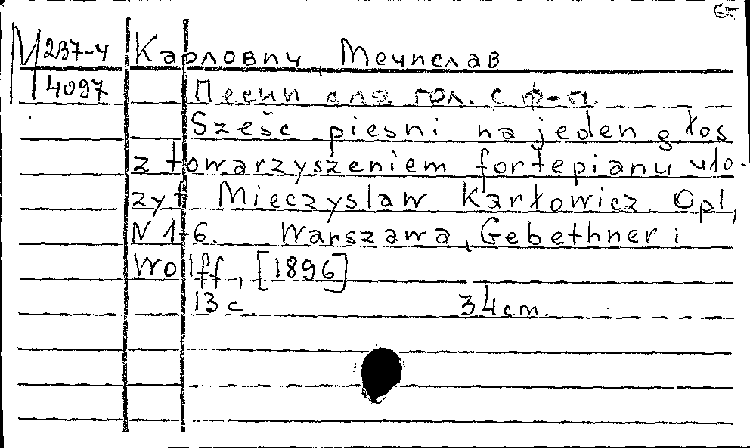 М 237-4 Карлович, Мечислав
4097 Песни для гол. с ф-п.
Sześć piesni na jeden głos
z towarzyszeniem fortepianu uło-
zył Mieczyslaw Karłowicz. Op1,
N 1-6. Warszawa, Gebethner i
Wolff, [1896]
13 с 34 cm